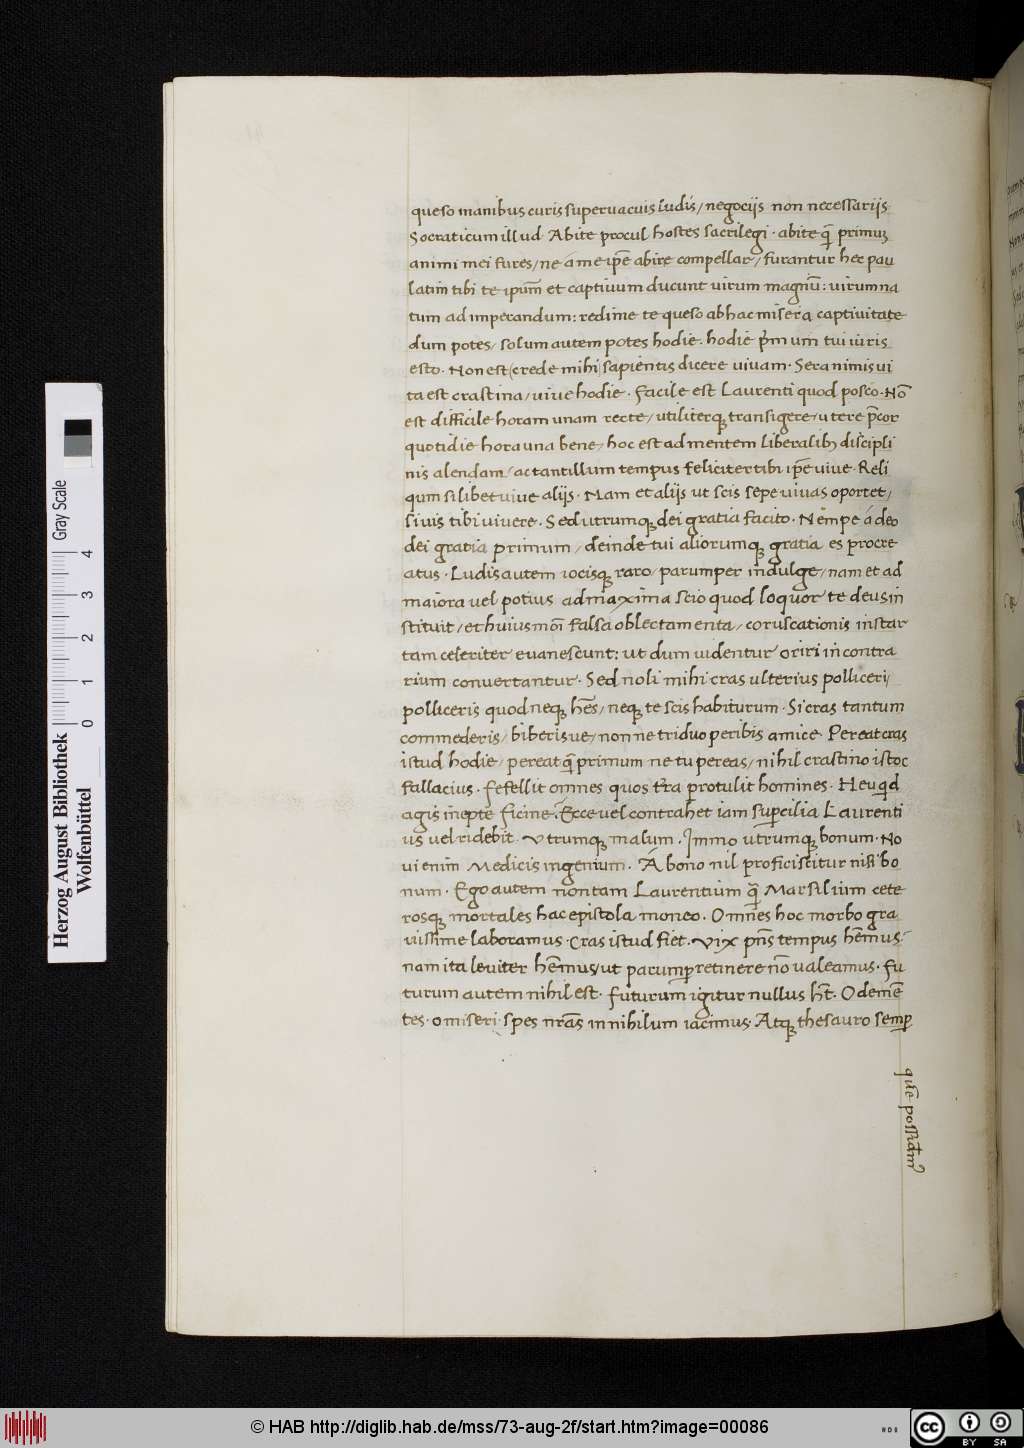 queso manibus curis supervacuis ludis/ negociis non necessariis
Socraticum illud Abite procul hostes sacrilegi · abite q̄ primuꝫ
animi mei fures/ ne a me ip̄e abire compellar/ furantur hec pau
latim tibi te ip̄um et captivum ducunt virum magnū: virum na
tum ad imperandum: redime te queso ab hac misera captivitate
dum potes/ solum autem potes hodie. hodie p̄mum tui iuris
esto. Non est (crede mihi) sapientis dicere vivam. Sera nimis vi
ta est crastina/ vive hodie. facile est Laurenti quod posco. Nō
est difficile horam unam recte/ utiliterqꝫ transigere/ utere p̄cor
quotidie hora una bene/ hoc est ad mentem liberalibꝫ discipli
nis alendam/ ac tantillum tempus feliciter tibi ip̄e vive. Reli
qum si libet vive aliis. Nam et aliis ut scis sepe vivas oportet/
si vis tibi vivere. Sed utrumqꝫ dei gratia facito. Nempe a deo
dei gratia primum/ deinde tui aliorumqꝫ gratia es procre
atus. Ludis autem iocisqꝫ raro/ parumper indulge/ nam et ad
maiora vel potius ad maxima scio quod loquor te deus in
stituit/ et huiusmōi falsa oblectamenta/ coruscationis instar
tam celeriter evanescunt: ut dum videntur oriri in contra
rium convertantur. Sed noli mihi cras ulterius polliceri/
polliceris quod neqꝫ hēs/ neqꝫ te scis habiturum. Si cras tantum
commederis/ biberisve/ nonne triduo peribis amice Pereat cras
istud hodie/ pereat q̄ primum ne tu pereas/ nihil crastino istoc
fallacius. fefellit omnes quos t̄ra protulit homines. Heu qid
agis inepte ficine. Ecce vel contrahet iam supercilia Laurenti
us vel ridebit. Utrumqꝫ malum. Immo utrumqꝫ bonum. No
vi enim Medicis ingenium. A bono nil proficiscitur nisi bo
num. Ego autem non tam Laurentium q̄ Marsilium cete
rosqꝫ mortales hac epistola moneo. Omnes hoc morbo gra
vissime laboramus. Cras istud fiet. Vix pn̄s tempus hēmus:
nam ita leviter hēmus/ ut parump retinere nō valeamus. fu
turum autem nihil est. futurum igitur nullus h̄t. O demē
tes. o miseri. spes nrās in nihilum iacimus. Atqꝫ thesauro semp
que possidam
Herzog August Bibliothek
Wolfenbüttel
0 1 2 3 4
Gray Scale
© HAB http://diglib.hab.de/mss/73-aug-2f/start.htm?image=00086
cc BY SA